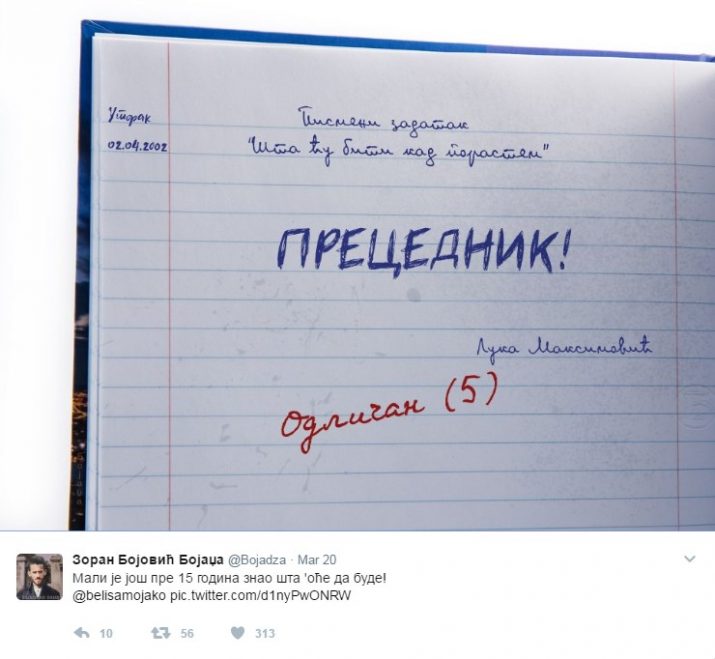 Уторак
Писмени задатак
02.04.2002
"Шта ћу бити кад порастем"
ПРЕЦЕДНИК!
Лука Максимовић
Одличан (5)
Зоран Бојовић Бојаџа @Bojadza · Mar 20
Мали је још пре 15 година знао шта 'оће да буде!
@belisamojako pic.twitter.com/d1nyPwONRW
10 56 313